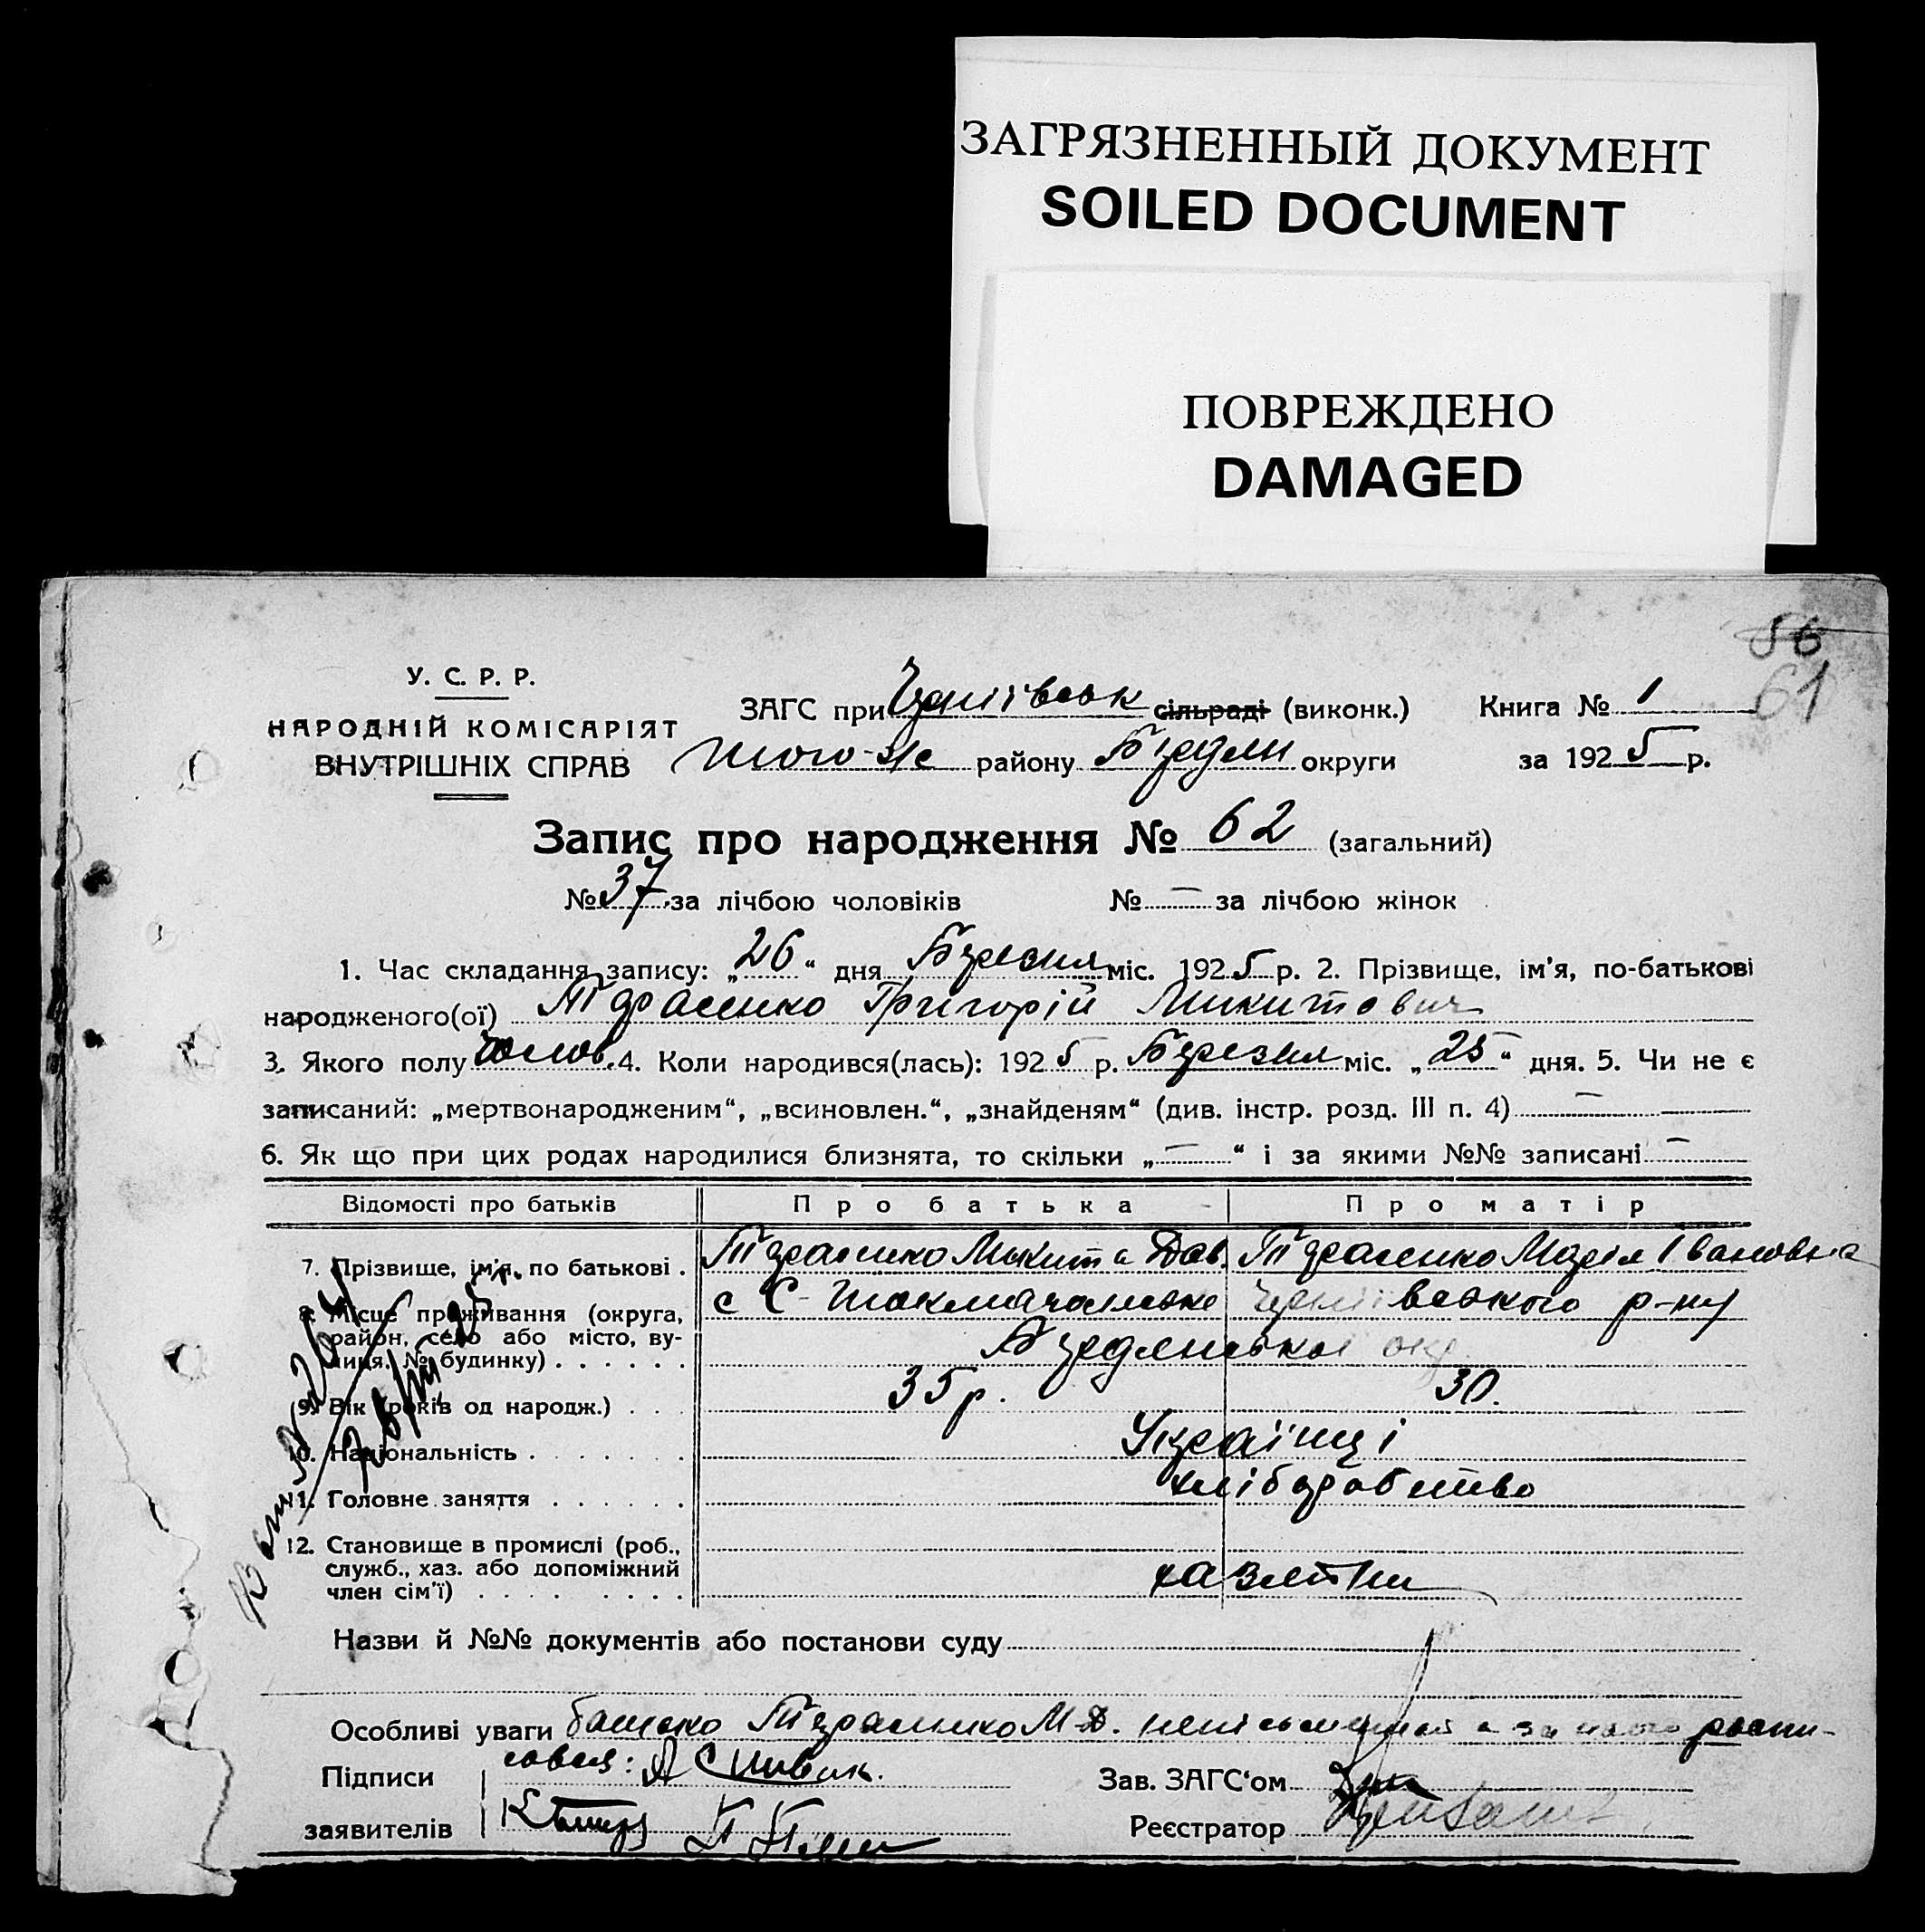 ЗАГРЯЗНЕННЫЙ ДОКУМЕНТ
SOILED DOCUMENT
ПОВРЕЖДЕНО
DAMAGED
56
61
У. С. Р. Р.
НАРОДНІЙ КОМІСАРІЯТ
ВНУТРІШНІХ СПРАВ
ЗАГС при сільраді (виконк.) Книга № 1
того-же району Бердян округи за 1925 р.
Запис про народження № 62 (загальний)
№ 37 за лічбою чоловіків № — за лічбою жінок
1. Час складання запису: „26“ дня Березня міс. 1925 р. 2. Прізвище, ім'я, по-батькові
народженого(ої) Тарасенко Григорій Микитович
3. Якого полу чолов. 4. Коли народився(лась): 1925 р. Березня міс. „25“ дня. 5. Чи не є
записаний: „мертвонародженим“, „всиновлен.“, „знайденям“ (див. інстр. розд. III п. 4) —
6. Як що при цих родах народилися близнята, то скільки „—“ і за якими №№ записані —
Відомості про батьків Про батька Про матір
7. Прізвище, ім'я, по батькові . Тарасенко Микита Дав. Тарасенко Марія Івановна
8. Місце проживання (округа, район, село або місто, вулиця, № будинку) . . . . . . с С- р-ну
Бердянської окр.
9. Вік (років од народж.) . . . 35 р. 30.
10. Національність . . . . . . . Українці
11. Головне заняття . . . . . . хліборобство
12. Становище в промислі (роб.,
служб., хаз. або допоміжний
член сім'ї) . . . . . . . . хазяїни
Назви й №№ документів або постанови суду
Особливі уваги батько Тарасенко М-Д. неписьменний а за нього роспи-
Підписи
Зав. ЗАГС'ом
заявителів
Реєстратор